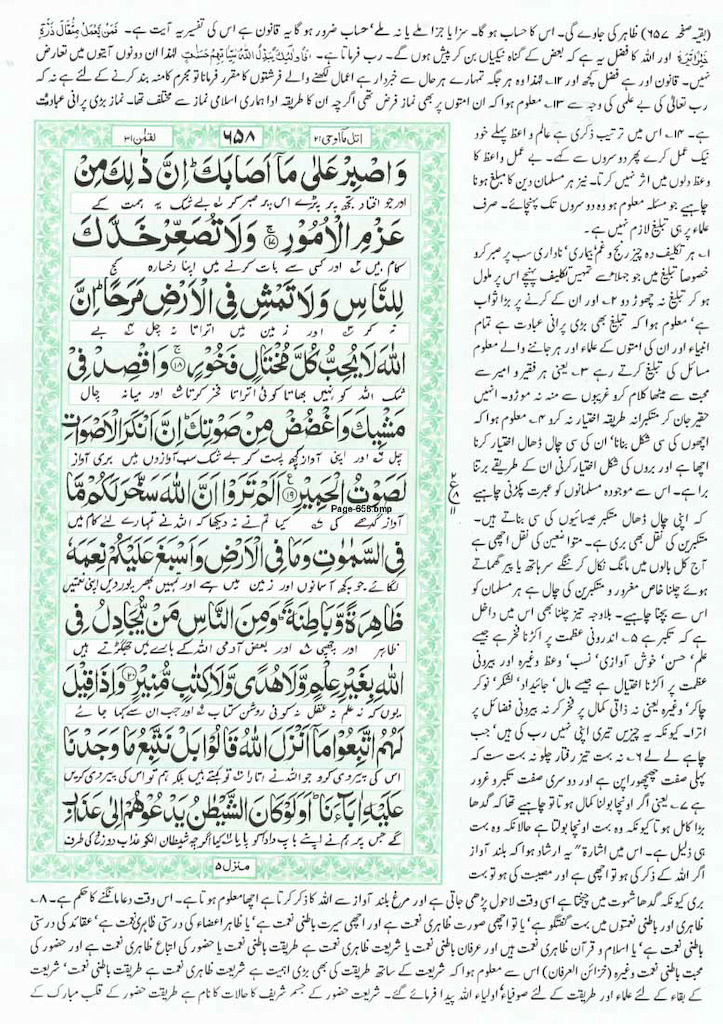 (بقیہ صفحہ ۶۵۷) ظاہر کی جاوے گی۔ اس کا حساب ہو گا۔ سزا یا جزا ملے یا نہ ملے‘ حساب ضرور ہو گا یہ قانون ہے اس کی تفسیر یہ آیت ہے۔ فَمَنْ يَّعْمَلْ مِثْقَالَ ذَرَّةٍ
خَيْرًا يَّرَهٗ اور اللہ کا فضل یہ ہے کہ بعض کے گناہ نیکیاں بن کر پیش ہوں گے۔ رب فرماتا ہے۔ فَاُولٰٓئِكَ يُبَدِّلُ اللّٰهُ سَيِّاٰتِهِمْ حَسَنٰتٍ لہٰذا ان دونوں آیتوں میں تعارض
نہیں۔ قانون اور ہے فضل کچھ اور ۱۲۔ لہٰذا وہ ہر جگہ تمہارے ہر حال سے خبردار ہے اعمال لکھنے والے فرشتوں کا مقرر فرمانا تو مجرم کا منہ بند کرنے کے لئے ہے نہ کہ
رب تعالیٰ کی بے علمی کی وجہ سے ۱۳۔ معلوم ہوا کہ ان امتوں پر بھی نماز فرض تھی اگرچہ ان کا طریقہ ادا ہماری اسلامی نماز سے مختلف تھا۔ نماز بڑی پرانی عبادت
اتل مآ اوحی ۲۱
۶۵۸
لقمٰن ۳۱
وَاصْبِرْ عَلٰى مَآ اَصَابَكَ ؕ اِنَّ ذٰلِكَ مِنْ
اور جو افتاد تجھ پر پڑے اس پر صبر کر بے شک یہ ہمت کے
عَزْمِ الْاُمُوْرِ ﴿۱۷﴾ وَلَا تُصَعِّرْ خَدَّكَ
کام ہیں اور کسی سے بات کرنے میں اپنا رخسارہ کج
لِلنَّاسِ وَلَا تَمْشِ فِى الْاَرْضِ مَرَحًا ؕ اِنَّ
نہ کر اور زمین میں اتراتا نہ چل بے
اللّٰهَ لَا يُحِبُّ كُلَّ مُخْتَالٍ فَخُوْرٍ ﴿۱۸﴾ وَاقْصِدْ فِىْ
شک اللہ کو نہیں بھاتا کوئی اتراتا فخر کرتا اور میانہ چال
مَشْيِكَ وَاغْضُضْ مِنْ صَوْتِكَ ؕ اِنَّ اَنْكَرَ الْاَصْوَاتِ
چل اور اپنی آواز کچھ پست کر بے شک سب آوازوں میں بری آواز
لَصَوْتُ الْحَمِيْرِ ﴿۱۹﴾ اَلَمْ تَرَوْا اَنَّ اللّٰهَ سَخَّرَ لَكُمْ مَّا
آواز گدھے کی کیا تم نے نہ دیکھا کہ اللہ نے تمہارے لئے کام میں
Page-658.bmp
فِى السَّمٰوٰتِ وَمَا فِى الْاَرْضِ وَاَسْبَغَ عَلَيْكُمْ نِعَمَهٗ
لگائے جو کچھ آسمانوں اور زمین میں ہے اور تمہیں بھرپور دیں اپنی نعمتیں
ظَاهِرَةً وَّبَاطِنَةً ؕ وَمِنَ النَّاسِ مَنْ يُّجَادِلُ فِى
ظاہر اور چھپی اور بعض آدمی اللہ کے بارے میں جھگڑتے ہیں
اللّٰهِ بِغَيْرِ عِلْمٍ وَّلَا هُدًى وَّلَا كِتٰبٍ مُّنِيْرٍ ﴿۲۰﴾ وَاِذَا قِيْلَ
یوں کہ نہ علم نہ عقل نہ کوئی روشن کتاب اور جب ان سے کہا جائے
لَهُمُ اتَّبِعُوْا مَآ اَنْزَلَ اللّٰهُ قَالُوْا بَلْ نَتَّبِعُ مَا وَجَدْنَا
اس کی پیروی کرو جو اللہ نے اتارا تو کہتے ہیں بلکہ ہم تو اس کی پیروی کریں
عَلَيْهِ اٰبَآءَنَا ؕ اَوَلَوْ كَانَ الشَّيْطٰنُ يَدْعُوْهُمْ اِلٰى عَذَابِ
گے جس پر ہم نے اپنے باپ دادا کو پایا کیا اگرچہ شیطان انکو عذاب دوزخ کی طرف
منزل ۵
ہے۔ ۱۴۔ اس میں ترتیب ذکری ہے عالم و واعظ پہلے خود
نیک عمل کرے پھر دوسروں سے کہے۔ بے عمل واعظ کا
وعظ دلوں میں اثر نہیں کرتا۔ نیز ہر مسلمان دین کا مبلغ ہونا
چاہیے جو مسئلہ معلوم ہو وہ دوسروں تک پہنچائے۔ صرف
علماء پر ہی تبلیغ لازم نہیں ہے۔
۱۔ ہر تکلیف دہ چیز رنج و غم‘ بیماری‘ ناداری سب پر صبر کرو
خصوصاً تبلیغ میں جو جہلا سے تمہیں تکلیف پہنچے اس پر ملول
ہو کر تبلیغ نہ چھوڑ دو ۲۔ اور ان کے کرنے پر بڑا ثواب
ہے‘ معلوم ہوا کہ تبلیغ بھی بڑی پرانی عبادت ہے تمام
انبیاء اور ان کی امتوں کے علماء اور ہر جاننے والے معلوم
مسائل کی تبلیغ کرتے رہے ۳۔ یعنی ہر فقیر و امیر سے
محبت سے میٹھا کلام کرو غریبوں سے منہ نہ موڑو۔ انہیں
حقیر جان کر متکبرانہ طریقہ اختیار نہ کرو ۴۔ معلوم ہوا کہ
اچھوں کی سی شکل بنانا‘ ان کی سی چال ڈھال اختیار کرنا
اچھا ہے اور بروں کی شکل اختیار کرنی ان کے طریقے برتنا
برا ہے۔ اس سے موجودہ مسلمانوں کو عبرت پکڑنی چاہیے
کہ اپنی چال ڈھال متکبر عیسائیوں کی سی بناتے ہیں۔
متکبرین کی نقل بھی بری ہے۔ متواضعین کی نقل اچھی ہے
آج کل بالوں میں مانگ نکال کر ننگے سر ہاتھ یا پیر گھماتے
ہوئے چلنا خاص مغرور و متکبرین کی چال ہے ہر مسلمان کو
اس سے بچنا چاہیے۔ بلاوجہ تیز چلنا بھی اس میں داخل
ہے کہ تکبر ہے ۵۔ اندرونی عظمت پر اکڑنا فخر ہے جیسے
علم‘ حسن‘ خوش آوازی‘ نسب‘ وعظ وغیرہ اور بیرونی
عظمت پر اکڑنا اختیال ہے جیسے مال‘ جائیداد‘ لشکر‘ نوکر
چاکر‘ وغیرہ یعنی نہ ذاتی کمال پر فخر کر نہ بیرونی فضائل پر
اترا۔ کیونکہ یہ چیزیں تیری اپنی نہیں رب کی ہیں‘ جب
چاہے لے لے ۶۔ نہ بہت تیز رفتار چلو نہ بہت ست کہ
پہلی صفت چھچھورا پن ہے اور دوسری صفت تکبر و غرور
ہے ۷۔ یعنی اگر اونچا بولنا کمال ہوتا تو چاہیے تھا کہ گدھا
بڑا کامل ہوتا کیونکہ وہ بہت اونچا بولتا ہے حالانکہ وہ بہت
ہی ذلیل ہے۔ اس میں اشارۃً یہ ارشاد ہوا کہ بلند آواز
اگر اللہ کے ذکر کی ہو تو اچھی ہے اور مصیبت کی ہو تو بہت
بری کیونکہ گدھا شہوت میں چیختا ہے اسی وقت لاحول پڑھی جاتی ہے اور مرغ بلند آواز سے اللہ کا ذکر کرتا ہے اچھا معلوم ہوتا ہے۔ اس وقت دعا مانگنے کا حکم ہے۔ ۸۔
ظاہری اور باطنی نعمتوں میں بہت گفتگو ہے‘ یا تو اچھی صورت ظاہری نعمت ہے اور اچھی سیرت باطنی نعمت ہے‘ یا ظاہر اعضاء کی درستی ظاہری نعمت ہے‘ عقائد کی درستی
باطنی نعمت ہے‘ یا اسلام و قرآن ظاہری نعمت ہیں اور عرفان باطنی نعمت یا شریعت ظاہری نعمت ہے طریقت باطنی نعمت یا حضور کی اتباع ظاہری نعمت ہے اور حضور کی
محبت باطنی نعمت وغیرہ (خزائن العرفان) اس سے معلوم ہوا کہ شریعت کے ساتھ طریقت کی بھی بڑی اہمیت ہے شریعت ظاہری نعمت ہے طریقت باطنی نعمت‘ شریعت
کے بقاء کے لئے علماء اور طریقت کے لئے صوفیاء‘ اولیاء اللہ پیدا فرمائے گئے۔ شریعت حضور کے جسم شریف کا حالات کا نام ہے طریقت حضور کے قلب مبارک کے